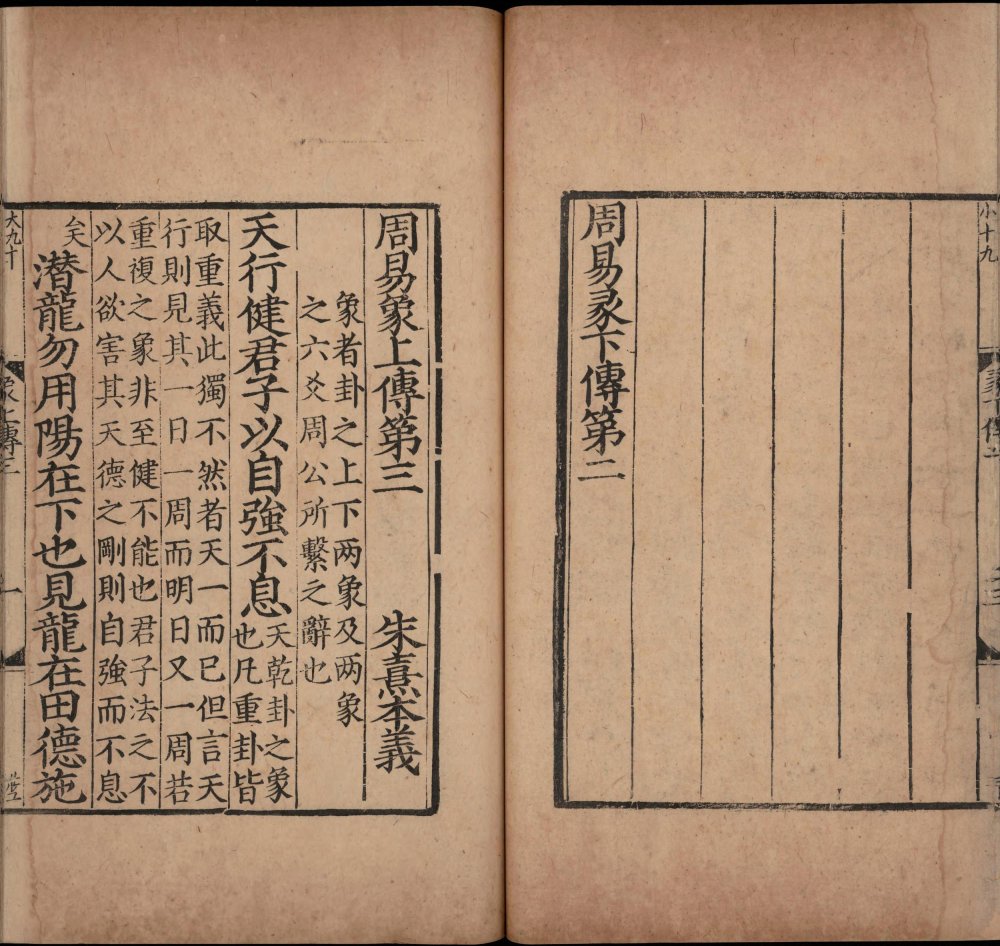 小十九
周易彖下傳第二
周易象上傳第三　朱熹本義
象者卦之上下两象及两象
之六爻周公所繫之辭也
天行健君子以自強不息
天乾卦之象
也凡重卦皆
取重義此獨不然者天一而已但言天
行則見其一日一周而明日又一周若
重復之象非至健不能也君子法之不
以人欲害其天德之剛則自強而不息
矣
潛龍勿用陽在下也見龍在田德施
大九十
象上傳三
一